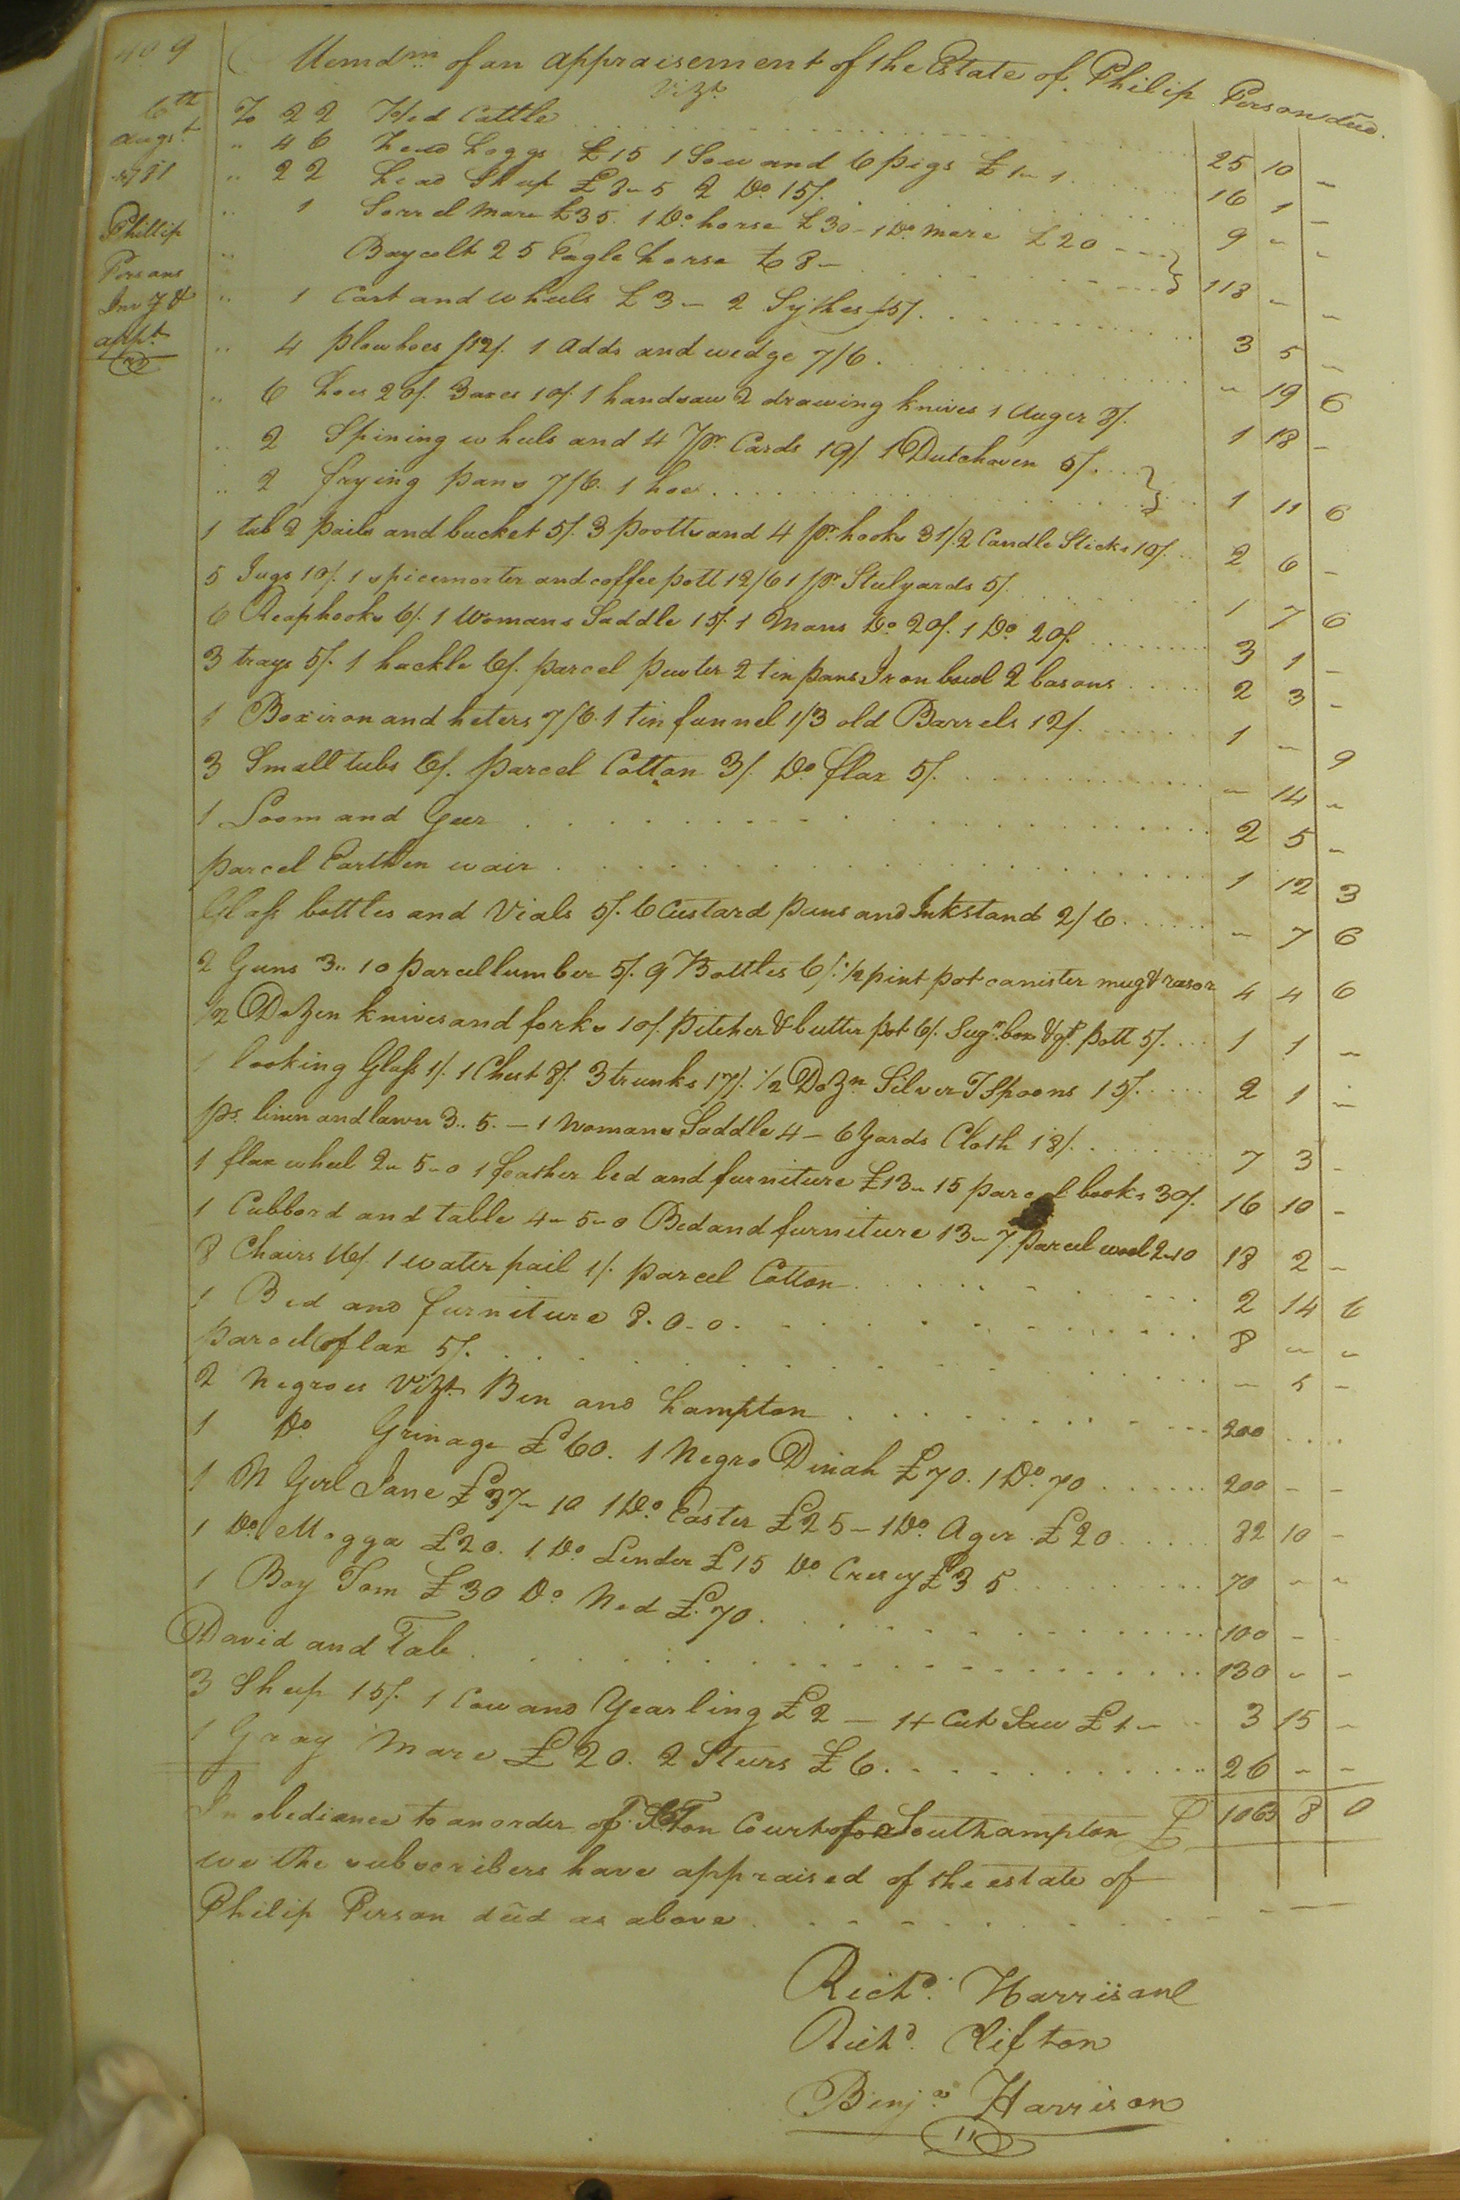 409
Memdm of an appraisement of the Estate of Philip Person decd.
Vizt
6th
augst
1781
Phillip
Persons
Inv y &
appt
To 22 Hed Cattle 25 10 –
" 46 head hoggs £15 1 Sow and 6 pigs £1–1 16 1 –
" 22 head Sheep £8–5 2 Do 15/. 9 – –
" 1 Sorrel mare £35. 1 Do. horse £30 – 1 Do mare £20
" Baycolt 25 Eagle horse to 8 – 118 – –
" 1 Cart and wheels £3 – 2 Sythes /5/. 3 5 –
" 4 plowhoes /12/. 1 adds and wedge 7/6. – 19 6
" 6 hoes 20/. 3 axes 10/. 1 handsaw 2 drawing knives 1 auger 8/. 1 18 –
" 2 Spining wheels and 4 pr. Cards 19/. 1 Dutchoven 5/.
" 2 frying pans 7/6. 1 hoe 1 11 6
1 tub 2 pails and bucket 5/. 3 potts and 4 pr. hooks 31/. 2 Candle Sticks 10/. 2 6 –
5 Jugs 10/. 1 spicemorter and coffee pott 12/6 1 pr. Stulyards 5/. 1 7 6
6 Reaphooks 6/. 1 Womans Saddle 15/. 1 Mans Do. 20/. 1 Do 20/. 3 1 –
3 trays 5/. 1 hackle 6/. parcel pewter 2 tin pans Iron bowl 2 basons 2 3 –
1 Boxiron and heters 7/6. 1 tin funnel 1/3 old Barrels 12/. 1 – 9
3 Small tubs 6/. parcel Cotton 3/. Do flax 5/. – 14 –
1 Loom and Geer 2 5 –
parcel Earthen wair 1 12 3
Glass bottles and Vials 5/. 6 Custard pans and Inkstand 2/6 – 7 6
2 Guns 3.. 10 parcel lumber 5/. 9 Bottles 6/. 1/2 pint pot canister mug & rasor 4 4 6
1/2 Dozen knives and forks 10/. pitcher & butter pot 6/. Sugr. box & qt pott 5/. 1 1 –
1 looking Glass 1/. 1 Chest 8/. 3 trunks 17/. 1/2 Dozn Silver T Spoons 15/. 2 1 –
ps. linen and lawn 3.. 5. – 1 Womans Saddle 4 – 6 yards Cloth 18/. 7 3 –
1 flax wheel 2–5–0 1 feather bed and furniture £13–15 parcel books 30/. 16 10 –
1 Cubbord and table 4–5–0 Bed and furniture 13–7. parcel wool 2–10 18 2 –
8 Chairs 16/. 1 water pail 1/. parcel Cotton 2 14 6
1 Bed and furniture 8.0–0. 8 – –
parcel of lax 5/. – 5 –
2 Negroes Vizt. Ben and hampton 200
1 Do Grinage £60. 1 Negro Dinah £70. 1 Do. 70 200 – –
1 N Girl Jane £37–10 1 Do. Easter £25 – 1 Do. Ager £20 82 10 –
1 Do. Mogga £20. 1 Do Linder £15 Do Cresey £35 70 – –
1 Boy Tom £30 Do Ned £70. 100 –
David and Tab 130 – –
3 Sheep 15/. 1 Cow and Yearling £2 – 1 + Cut Saw £1– 3 15 –
1 Gray Mare £20. 2 Sturs £6. 26 – –
In obediance to an order of Court Southampton £ 1063 8 0
we the subscribers have appraised of the estate of
Philip Person decd as above
Richd. Harrison
Richd. Clifton
Benja Harrison